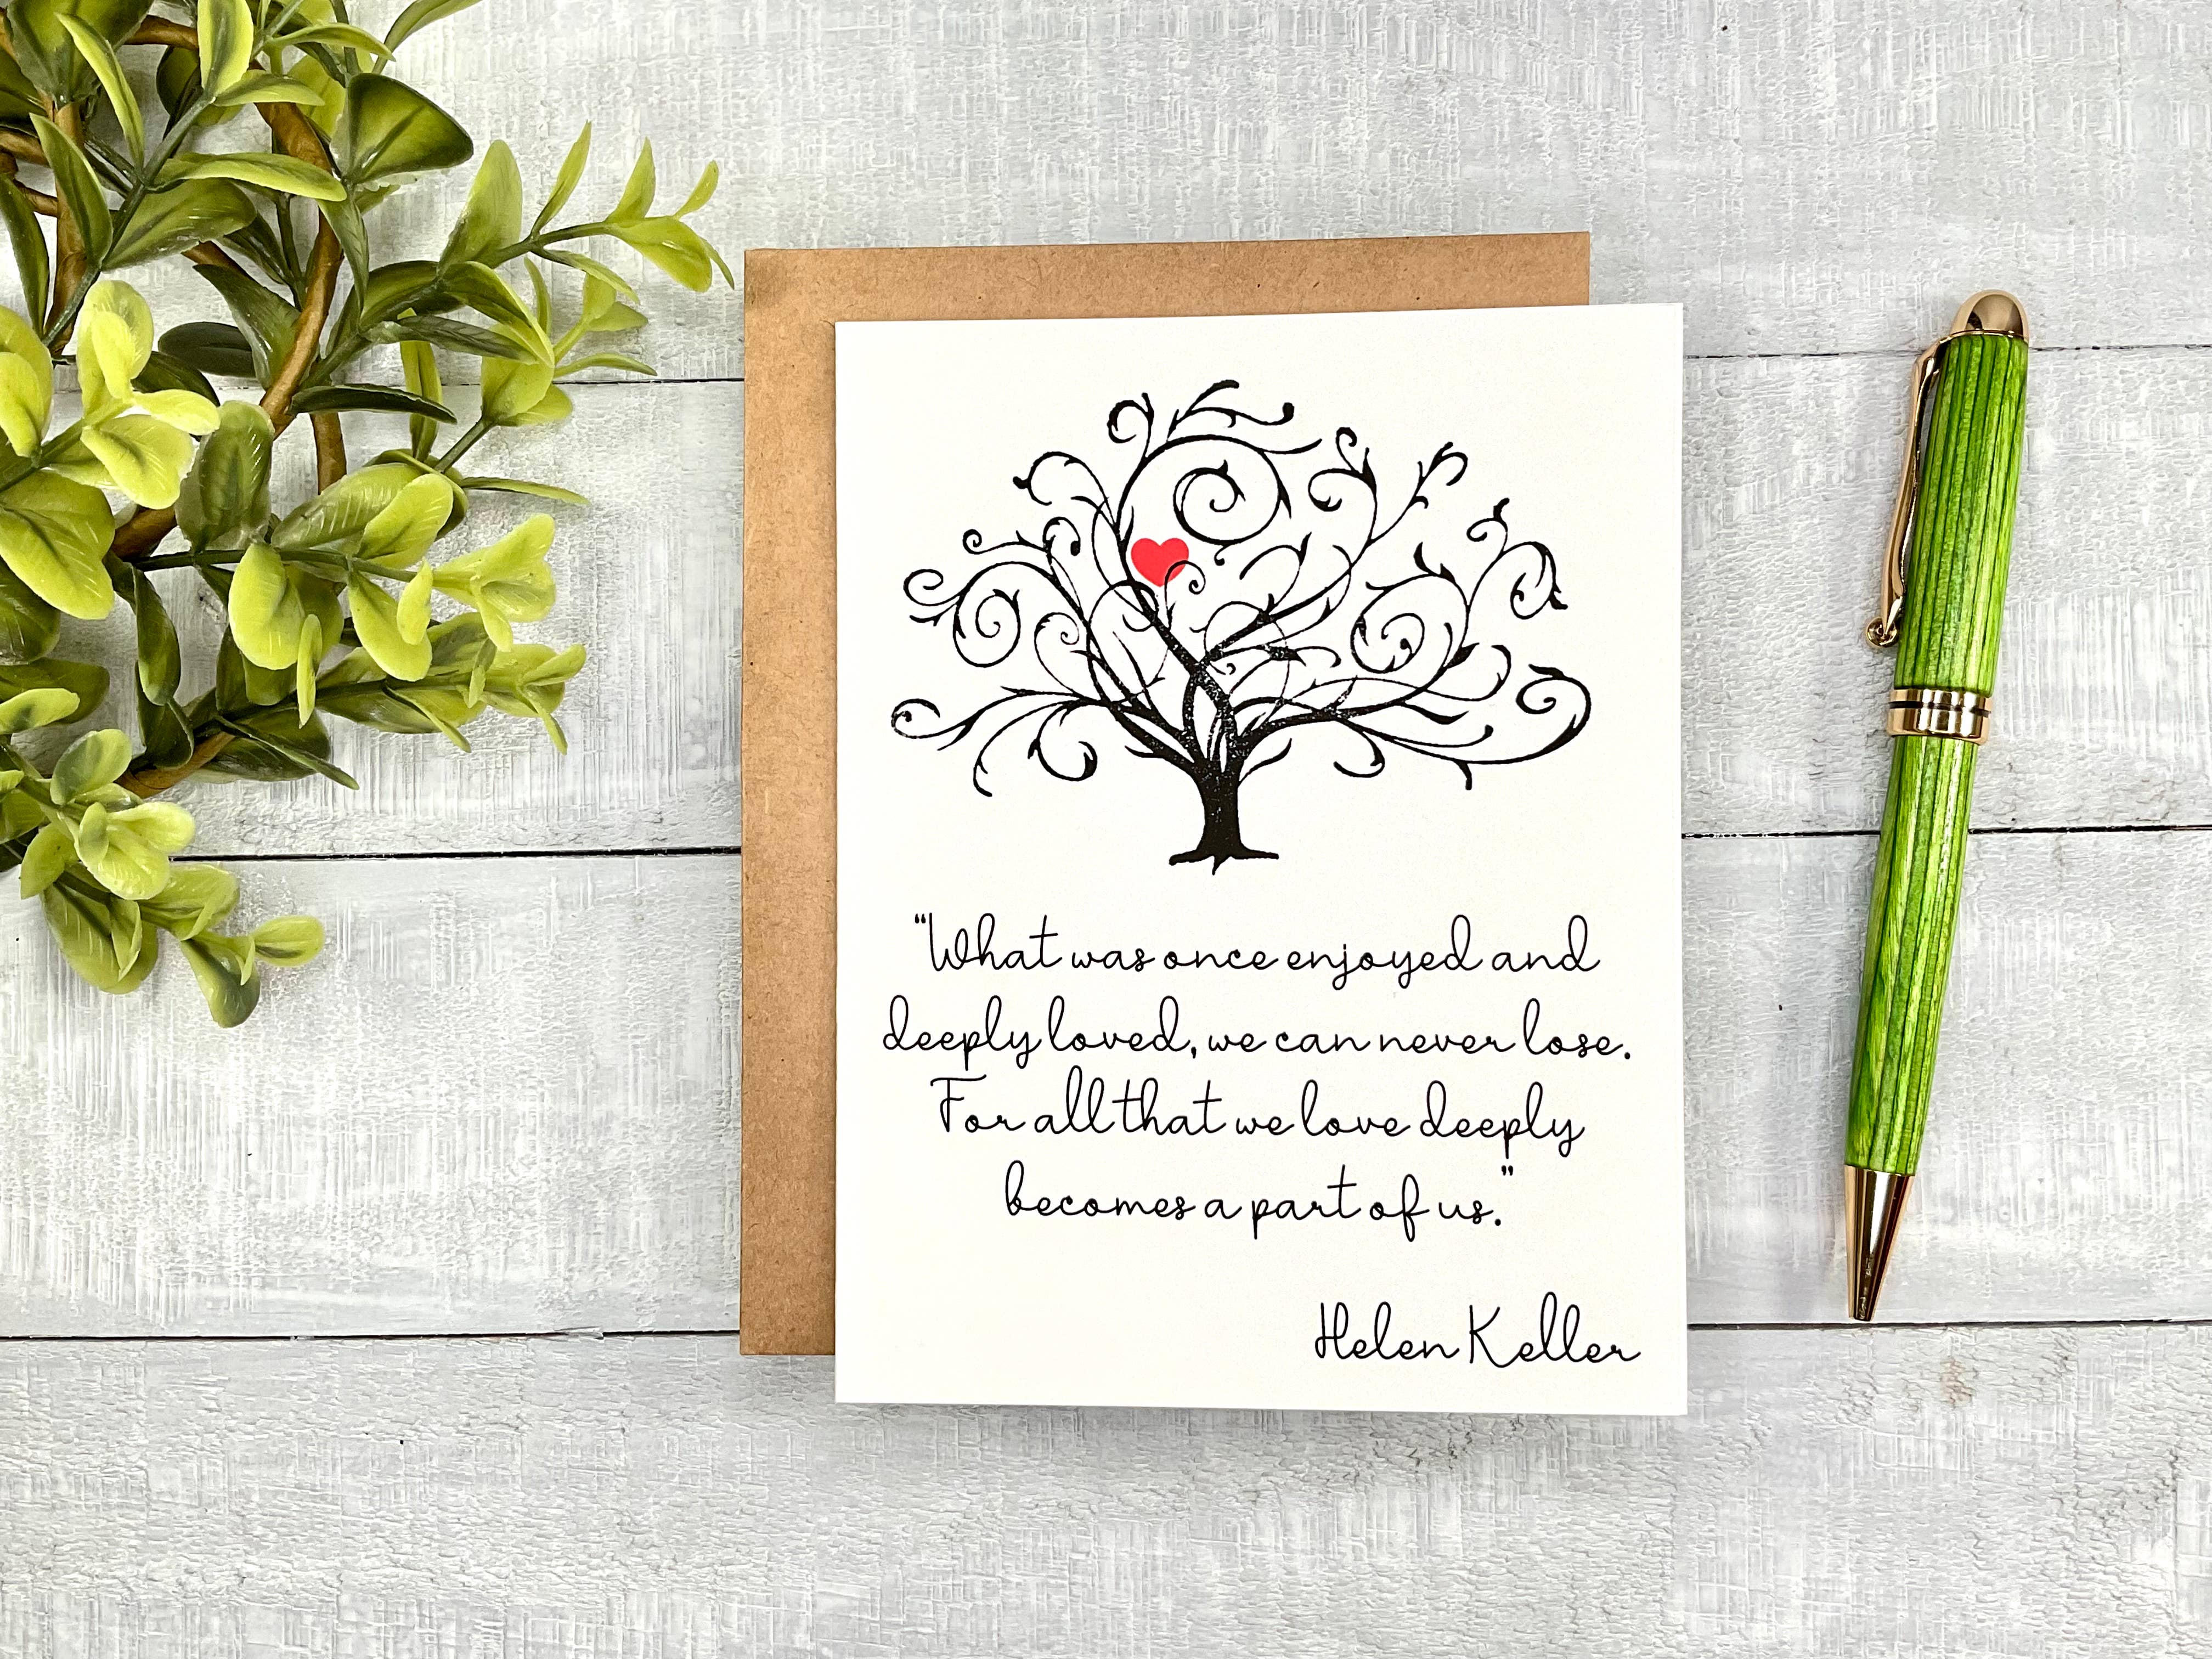 "What was once enjoyed and
deeply loved, we can never lose.
For all that we love deeply
becomes a part of us."
Helen Keller